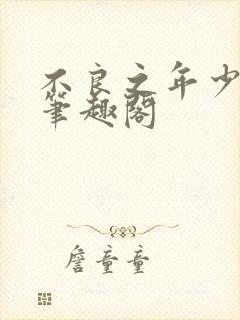 不良之年少
筆趣閣
詹童童